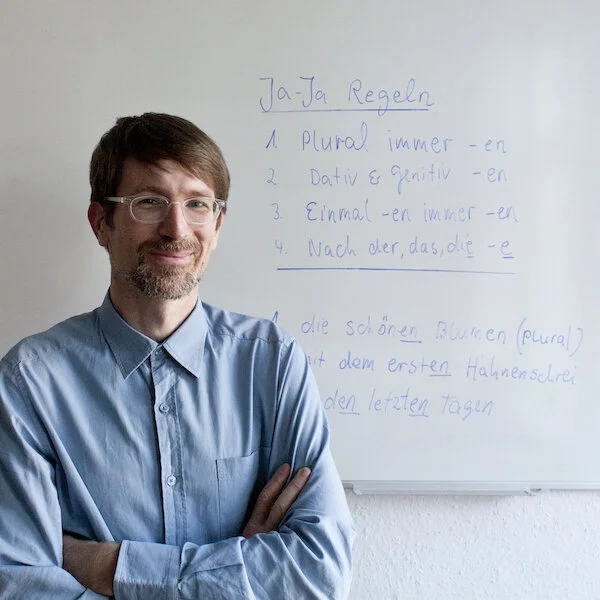 Ja-Ja Regeln
1 Plural immer -en
2 Dativ & Genitiv -en
3. Einmal -en immer -en
4. Nach der, das, die -e
1 die schönen Blumen (plural)
dem ersten Hahnenschrei
den letzten Tagen